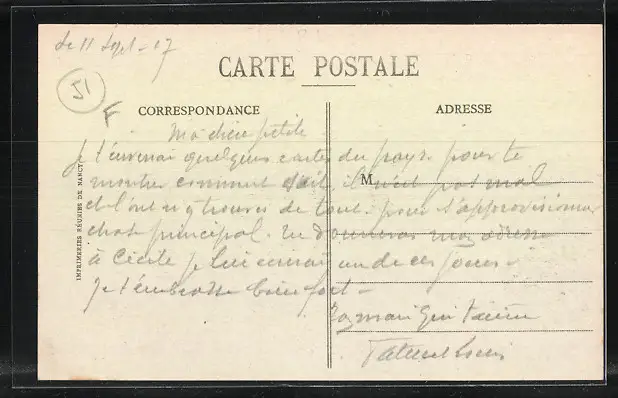 Le 11 Sept - 17
CARTE POSTALE
51
F
CORRESPONDANCE
ADRESSE
Ma chère petite
Je t'enverrai quelques cartes du pays. pour te
M
montrer comment il n'est pas mal
et l'on y trouve de tout. pour s'approvisionner
chose principal. Tu donneras mon adresse
à Cécile je lui enverrai un de ces jours.
Je t'embrasse bien fort -
Ton mari qui t'aime
Louis
IMPRIMERIES RÉUNIES DE NANCY